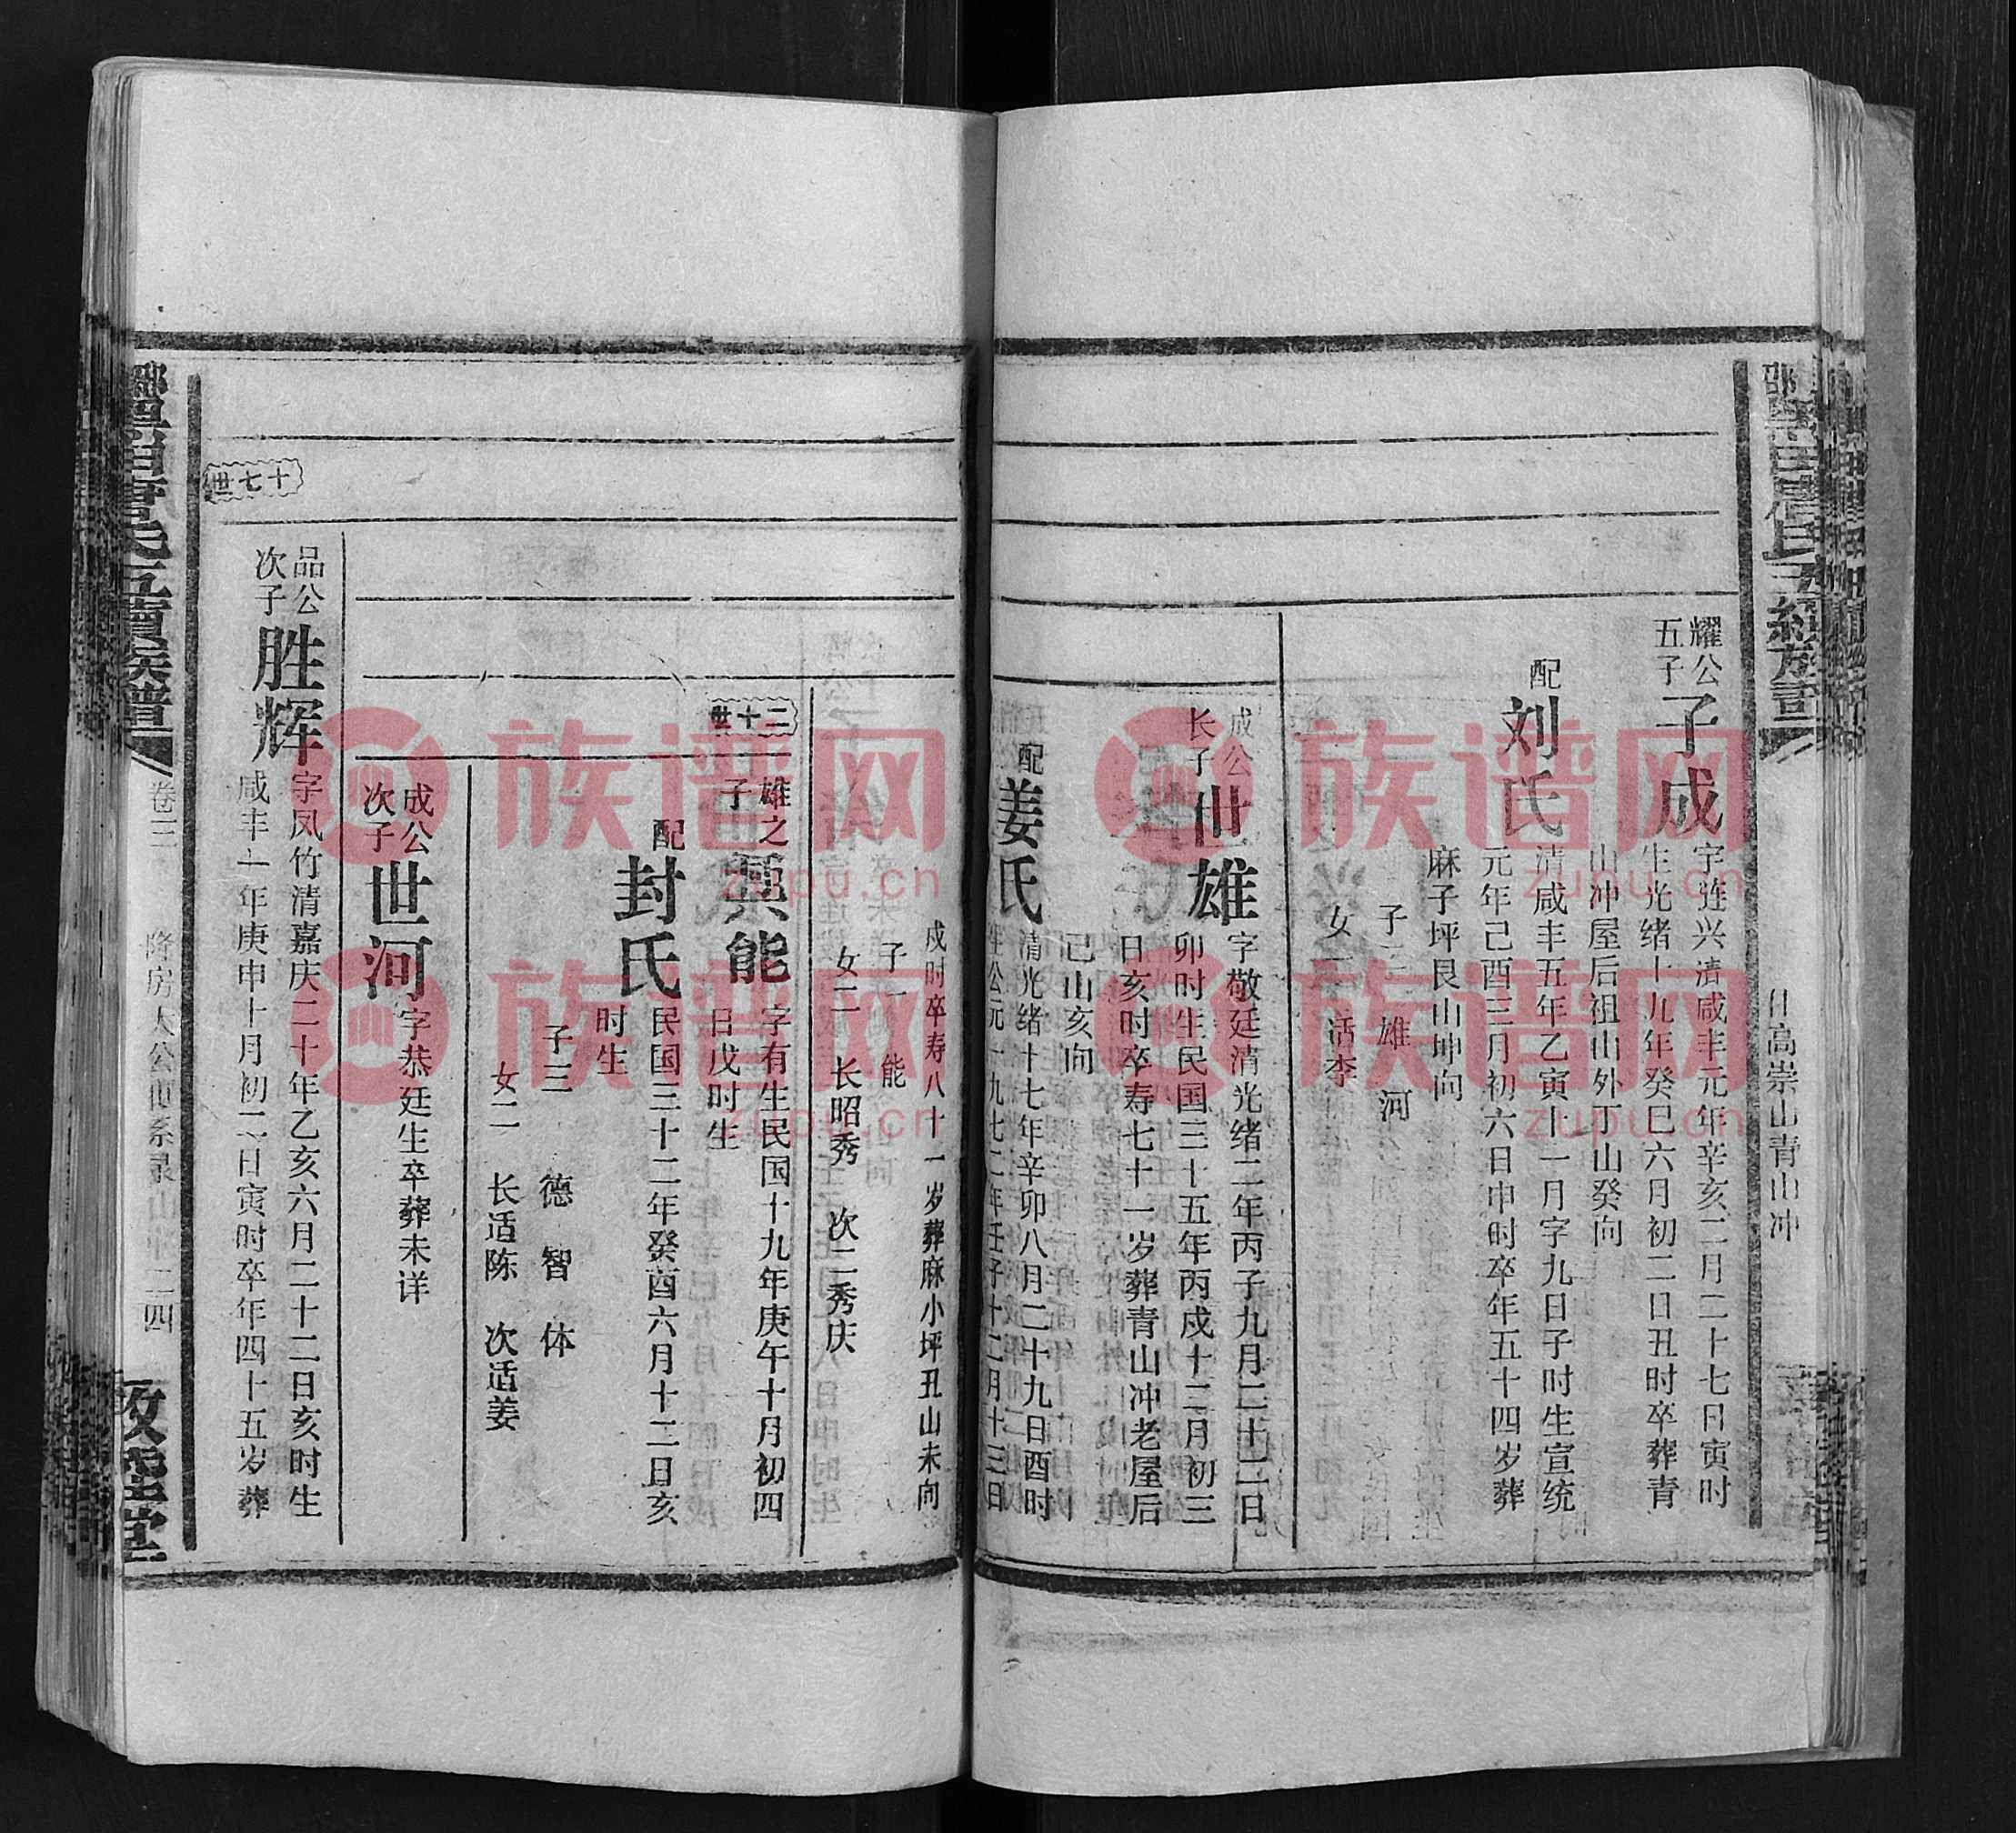 日高崇山青山冲
耀公
五子
子成
字连兴清咸丰元年辛亥二月二十七日寅时
生光绪十九年癸巳六月初二日丑时卒葬青
山冲屋后祖山外丁山癸向
配
刘氏
清咸丰五年乙寅十一月字九日子时生宣统
元年己酉三月初六日申时卒年五十四岁葬
麻子坪艮山坤向
子二 雄 河
女一 适李
成公
长子
世雄
字敬廷清光绪二年丙子九月二十二日
卯时生民国三十五年丙戌十二月初三
日亥时卒寿七十一岁葬青山冲老屋后
巳山亥向
配
姜氏
清光绪十七年辛卯八月二十九日酉时
生公元一九七二年壬子十二月十三日
戌时卒寿八十一岁葬麻小坪丑山未向
子一 能
女二 长昭秀 次二秀庆
三十世
雄之
子
能
字有生民国十九年庚午十月初四
日戌时生
配
封氏
民国三十二年癸酉六月十二日亥
时生
子三 德 智 体
女二 长适陈 次适姜
成公
次子
世河
字恭廷生卒葬未详
十七世
品公
次子
胜辉
字凤竹清嘉庆二十年乙亥六月二十二日亥时生
咸丰十年庚申十月初二日寅时卒年四十五岁葬
卷三
隆房大公世系录
二四
族谱网
zupu.cn
族谱网
zupu.cn
族谱网
zupu.cn
族谱网
zupu.cn